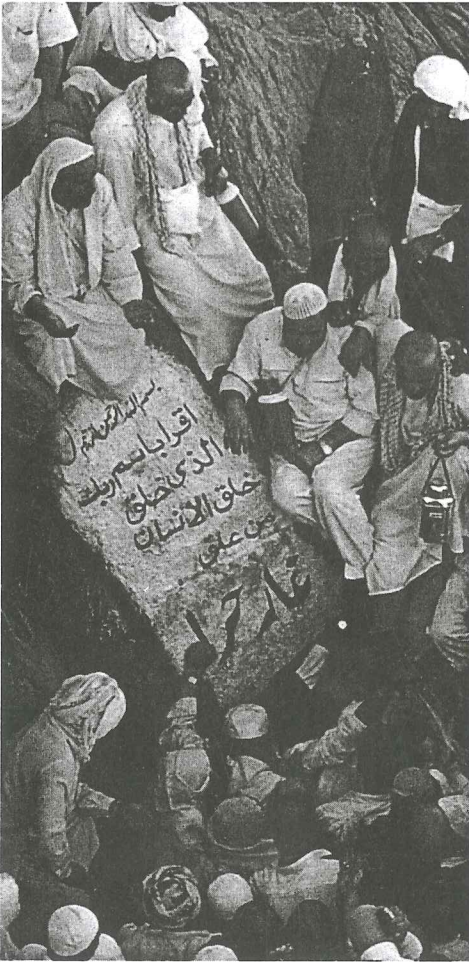 بسم الله الرحمن الرحيم
اقرأ باسم ربك
الذي خلق
خلق الانسان
من علق
غار حراء